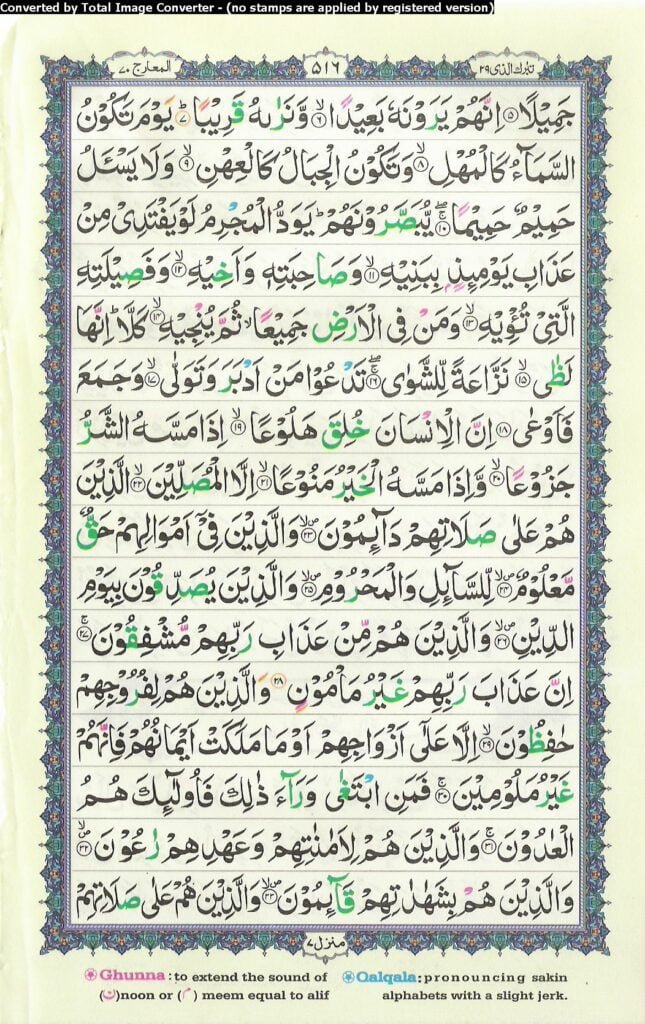 Converted by Total Image Converter - (no stamps are applied by registered version)
تبٰرك الذی ۲۹
۵۱۶
المعارج ۷۰
جَمِيْلًا ۵ اِنَّهُمْ يَرَوْنَهٗ بَعِيْدًا ۶ وَّنَرٰىهُ قَرِيْبًا ۷ؕ يَوْمَ تَكُوْنُ
السَّمَآءُ كَالْمُهْلِ ۸ۙ وَتَكُوْنُ الْجِبَالُ كَالْعِهْنِ ۹ۙ وَلَا يَسْـَٔلُ
حَمِيْمٌ حَمِيْمًا ۱۰ۚۖ يُّبَصَّرُوْنَهُمْ ؕ يَوَدُّ الْمُجْرِمُ لَوْ يَفْتَدِىْ مِنْ
عَذَابِ يَوْمِئِذٍۭ بِبَنِيْهِ ۱۱ۙ وَصَاحِبَتِهٖ وَاَخِيْهِ ۱۲ۙ وَفَصِيْلَتِهِ
الَّتِىْ تُـْٔوِيْهِ ۱۳ۙ وَمَنْ فِى الْاَرْضِ جَمِيْعًا ۙ ثُمَّ يُنْجِيْهِ ۱۴ۙ كَلَّا ؕ اِنَّهَا
لَظٰى ۱۵ۙ نَزَّاعَةً لِّلشَّوٰى ۱۶ۚۖ تَدْعُوْا مَنْ اَدْبَرَ وَتَوَلّٰى ۱۷ۙ وَجَمَعَ
فَاَوْعٰى ۱۸ اِنَّ الْاِنْسَانَ خُلِقَ هَلُوْعًا ۱۹ۙ اِذَا مَسَّهُ الشَّرُّ
جَزُوْعًا ۲۰ۙ وَّاِذَا مَسَّهُ الْخَيْرُ مَنُوْعًا ۲۱ۙ اِلَّا الْمُصَلِّيْنَ ۲۲ۙ الَّذِيْنَ
هُمْ عَلٰى صَلَاتِهِمْ دَآئِمُوْنَ ۲۳ۙ وَالَّذِيْنَ فِىْٓ اَمْوَالِهِمْ حَقٌّ
مَّعْلُوْمٌ ۲۴ۙ لِّلسَّآئِلِ وَالْمَحْرُوْمِ ۲۵ۙ وَالَّذِيْنَ يُصَدِّقُوْنَ بِيَوْمِ
الدِّيْنِ ۲۶ۙ وَالَّذِيْنَ هُمْ مِّنْ عَذَابِ رَبِّهِمْ مُّشْفِقُوْنَ ۲۷ۚ
اِنَّ عَذَابَ رَبِّهِمْ غَيْرُ مَاْمُوْنٍ ۲۸ وَالَّذِيْنَ هُمْ لِفُرُوْجِهِمْ
حٰفِظُوْنَ ۲۹ۙ اِلَّا عَلٰٓى اَزْوَاجِهِمْ اَوْ مَا مَلَكَتْ اَيْمَانُهُمْ فَاِنَّهُمْ
غَيْرُ مَلُوْمِيْنَ ۳۰ۚ فَمَنِ ابْتَغٰى وَرَآءَ ذٰلِكَ فَاُولٰٓئِكَ هُمُ
الْعٰدُوْنَ ۳۱ۚ وَالَّذِيْنَ هُمْ لِاَمٰنٰتِهِمْ وَعَهْدِهِمْ رٰعُوْنَ ۳۲ۙ
وَالَّذِيْنَ هُمْ بِشَهٰدٰتِهِمْ قَآئِمُوْنَ ۳۳ۙ وَالَّذِيْنَ هُمْ عَلٰى صَلَاتِهِمْ
منزل ۷
Ghunna : to extend the sound of
(ن) noon or (م) meem equal to alif
Qalqala : pronouncing sakin
alphabets with a slight jerk.